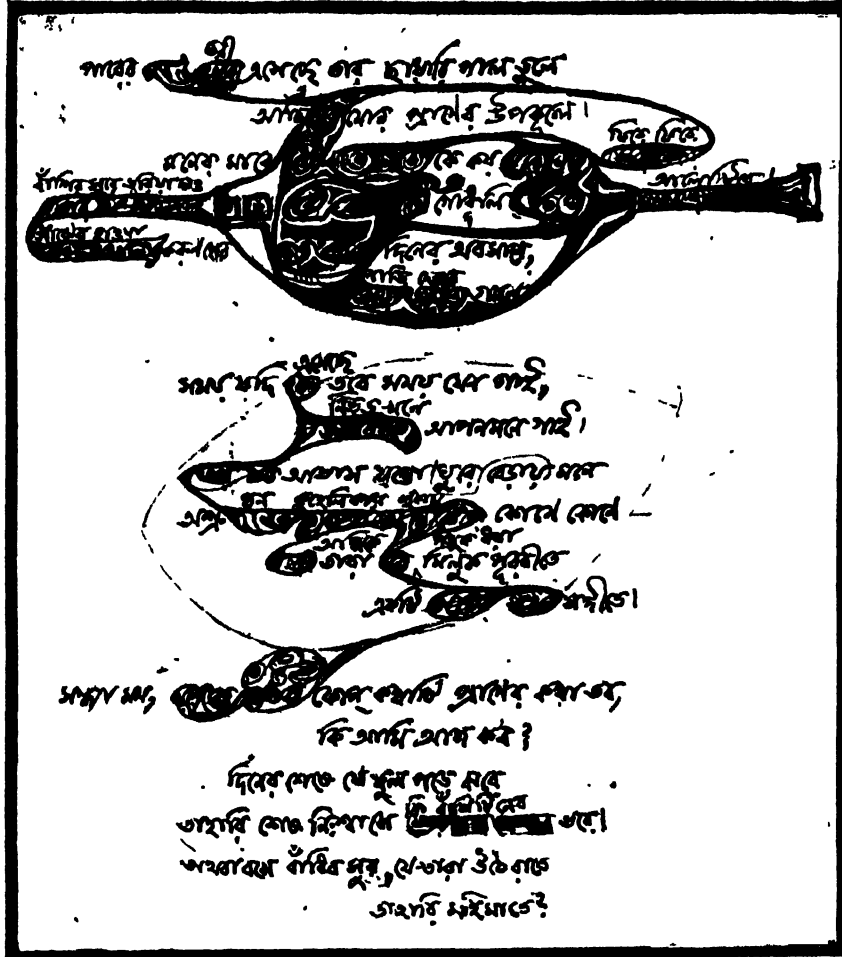 পারের তরী এসেছে তার ছায়ারি পাল তুলে
আজি মোর প্রাণের উপকূলে।
মনের মাঝে কে কয় ফিরে ফিরে
বাঁশির সুরে ভরিয়া দাও গোধূলি আলোটিরে।
সাঁঝের হাওয়া করুণ হোক দিনের অবসানে,
পাড়ি দেবার গানে।
সময় যদি এসেছে তবে সময় যেন পাই,
নিভৃত খনে আপনমনে গাই।
আভাস যত বেড়ায় ঘুরে মনে
অশ্রুঘন কুহেলিকায় কোণে কোণে
আজিকে তারা মিলুক পূরবীতে
একটি সঙ্গীতে।
সন্ধ্যা মম, কোন্ কথাটি প্রাণের কথা তব,
কি আমি আজ কব?
দিনের শেষে যে ফুল পড়ে ঝরে
তাহারি শেষ নিশ্বাসে কি বাঁশিটিরে ভরে।
অথবা বসে বাঁধিব সুর, যে তারা উঠে রাতে
তাহারি মহিমাতে?